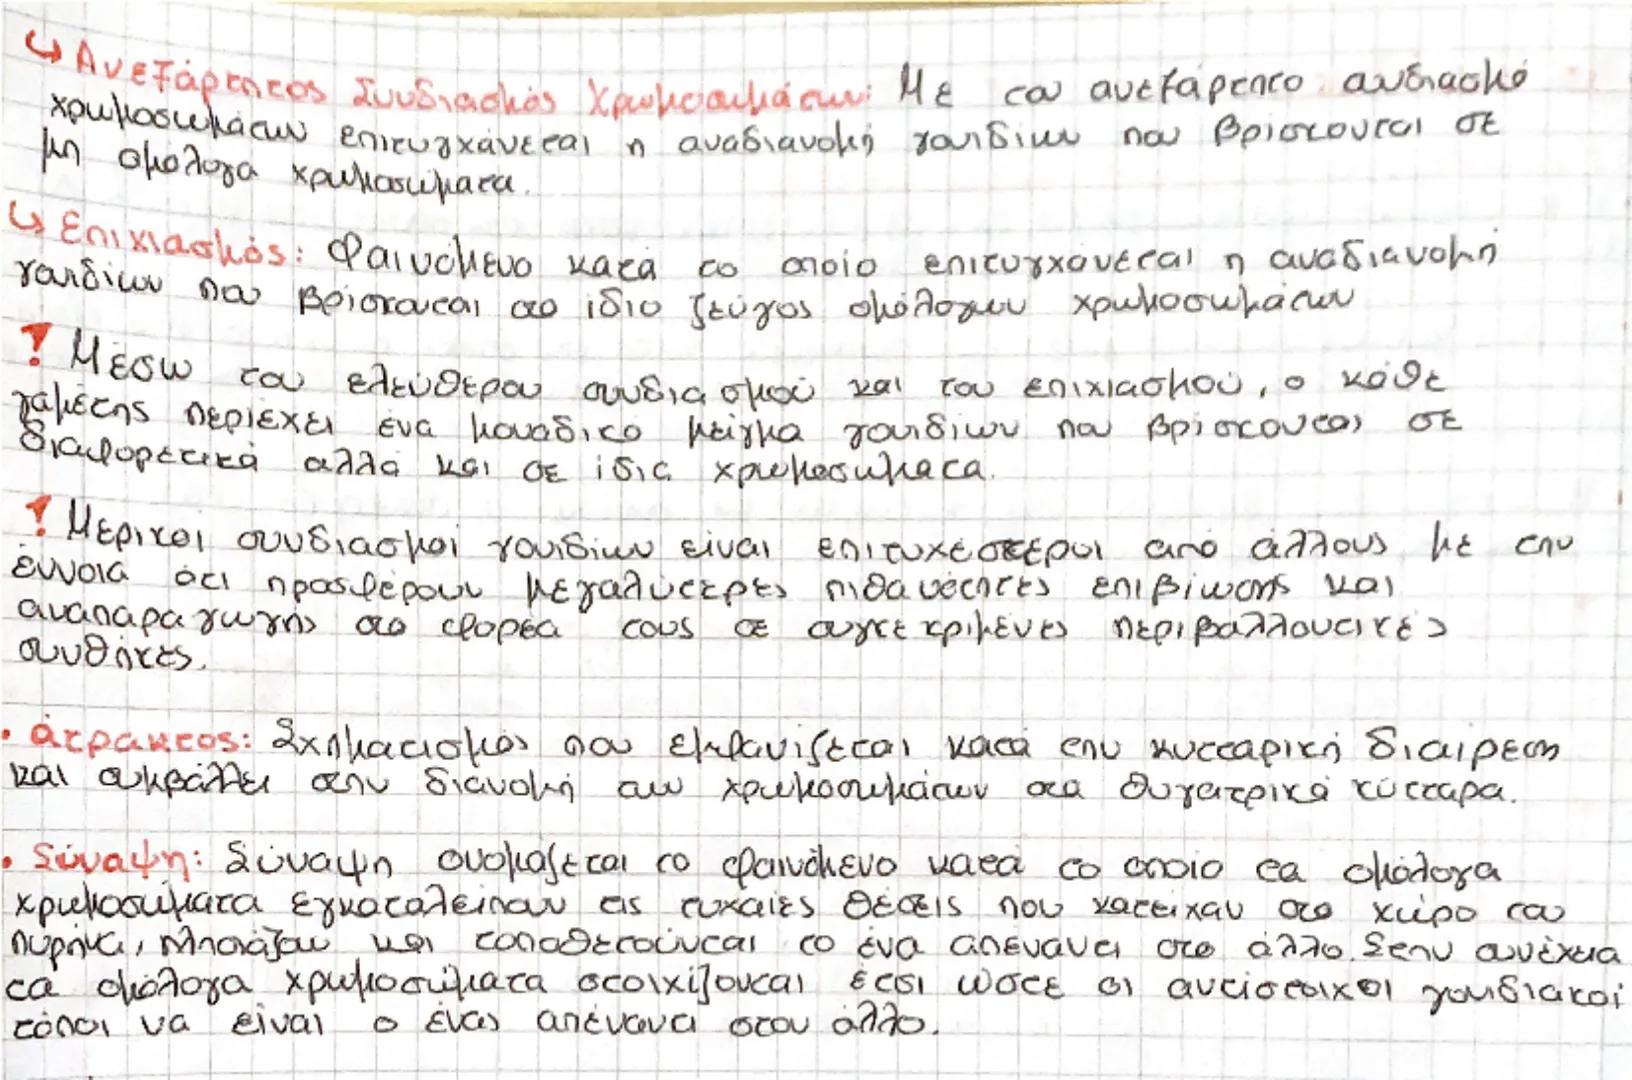 ↪ Ανεξάρτητος Συνδιασμός Χρωμοσωμάτων: Με του ανεξάρτητο συνδιασμό
χρωμοσωμάτων επιτυγχάνεται η αναδιανομή γονιδίων που βρίσκονται σε
μη ομόλογα χρωμοσώματα.
↪ Επιχιασμός: Φαινόμενο κατά το οποίο επιτυγχάνεται η αναδιανομή
γονιδίων που βρίσκονται στο ίδιο ζεύγος ομόλογων χρωμοσωμάτων
! Μέσω του ελεύθερου συνδιασμού και του επιχιασμού, ο κάθε
γαμέτης περιέχει ένα μοναδικό μείγμα γονιδίων που βρίσκονται σε
διαφορετικά αλλά και σε ίδια χρωμοσώματα.
! Μερικοί συνδιασμοί γονιδίων είναι επιτυχέστεροι από άλλους με την
έννοια ότι προσφέρουν μεγαλύτερες πιθανότητες επιβίωσης και
αναπαραγωγής στο φορέα τους σε συγκεκριμένες περιβαλλοντικές
συνθήκες.
• άτρακτος: Σχηματισμός που εμφανίζεται κατά την κυτταρική διαίρεση
και συμβάλλει στην διανομή των χρωμοσωμάτων στα θυγατρικά κύτταρα.
• Σύναψη: Σύναψη ονομάζεται το φαινόμενο κατά το οποίο τα ομόλογα
χρωμοσώματα εγκαταλείπουν τις τυχαίες θέσεις που κατείχαν στο χώρο του
πυρήνα, πλησιάζουν και τοποθετούνται το ένα απέναντι στο άλλο. Στην συνέχεια
τα ομόλογα χρωμοσώματα στοιχίζονται έτσι ώστε οι αντίστοιχοι γονιδιακοί
τόποι να είναι ο ένας απέναντι στον άλλο.